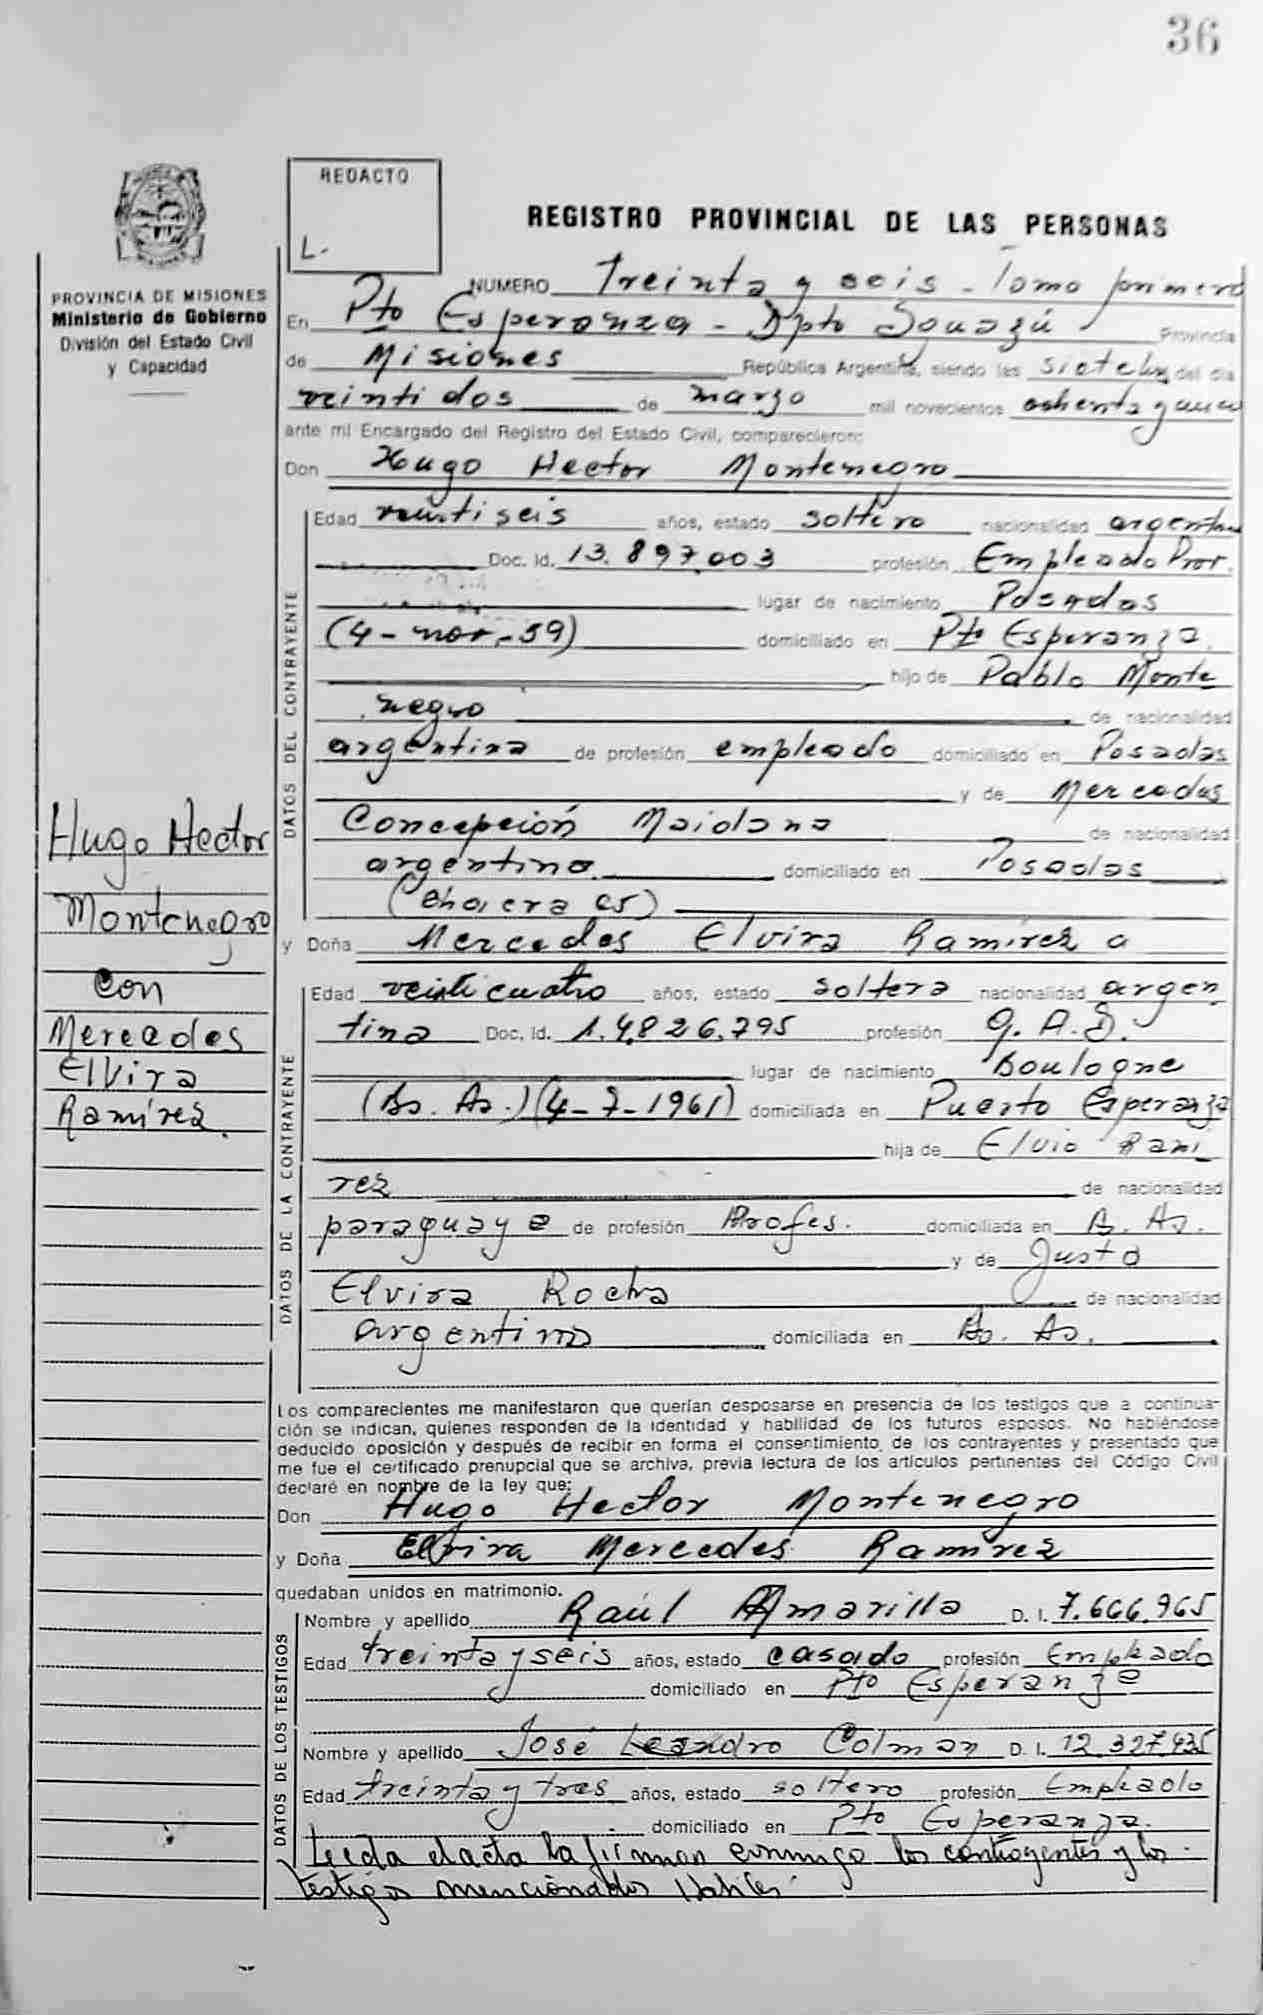 36
REDACTO
L.
REGISTRO PROVINCIAL DE LAS PERSONAS
PROVINCIA DE MISIONES
Ministerio de Gobierno
División del Estado Civil
y Capacidad
NUMERO Treinta y seis - Tomo primero
En Pto Esperanza - Dpto Iguazú Provincia
de Misiones República Argentina, siendo las siete hs del día
veintidos de marzo mil novecientos ochenta y
ante mi Encargado del Registro del Estado Civil, comparecieron:
Don Hugo Hector Montenegro
DATOS DEL CONTRAYENTE
Edad veintiseis años, estado soltero nacionalidad argentina
Doc. Id. 13.897.003 profesión Empleado Prov.
lugar de nacimiento Posadas
(4-nov.-59) domiciliado en Pto Esperanza.
hijo de Pablo Monte
negro de nacionalidad
argentina de profesión empleado domiciliado en Posadas
y de Mercedes
Concepción Maidana de nacionalidad
argentina domiciliado en Posadas
y Doña Mercedes Elvira Ramirez a
DATOS DE LA CONTRAYENTE
Edad veinticuatro años, estado soltera nacionalidad argen
tina Doc. Id. 14.826.795 profesión Q. A. D.
lugar de nacimiento Boulogne
(Bs. As.) (4-7-1961) domiciliada en Puerto Esperanza
hija de Elvio Rami
rez de nacionalidad
paraguaya de profesión Profes. domiciliada en B. As.
y de Justa
Elvira Rocha de nacionalidad
argentina domiciliada en Bs. As.
Hugo Hector
Montenegro
con
Mercedes
Elvira
Ramírez.
Los comparecientes me manifestaron que querían desposarse en presencia de los testigos que a continua-
ción se indican, quienes responden de la identidad y habilidad de los futuros esposos. No habiéndose
deducido oposición y después de recibir en forma el consentimiento de los contrayentes y presentado que
me fue el certificado prenupcial que se archiva, previa lectura de los artículos pertinentes del Código Civil
declaré en nombre de la ley que:
Don Hugo Hector Montenegro
y Doña Elvira Mercedes Ramirez
quedaban unidos en matrimonio.
DATOS DE LOS TESTIGOS
Nombre y apellido Raúl Amarilla D. I. 7.666.965
Edad treinta y seis años, estado casado profesión Empleado
domiciliado en Pto Esperanza
Nombre y apellido José Leandro Colman D. I. 12.327.935
Edad treinta y tres años, estado soltero profesión Empleado
domiciliado en Pto Esperanza.
Leida el acta la firman conmigo los contrayentes y los
testigos mencionados